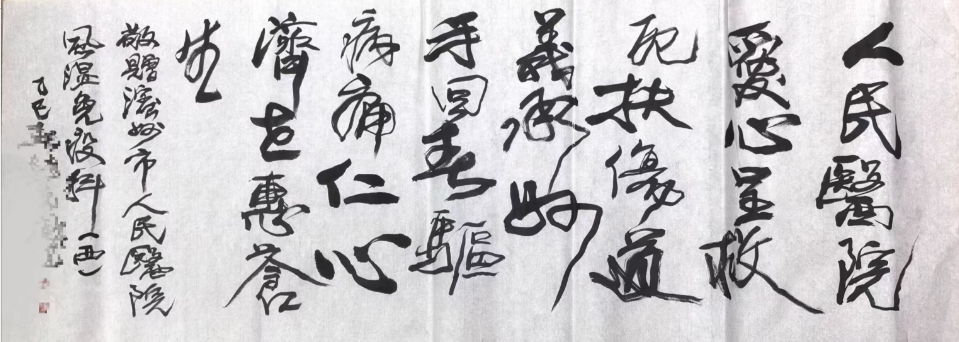 人民醫院
愛心呈救
死扶傷道
義承妙
手回春驅
病痛仁心
濟世惠蒼
生
敬贈濱州市人民醫院
風湿免疫科（西）
乙巳